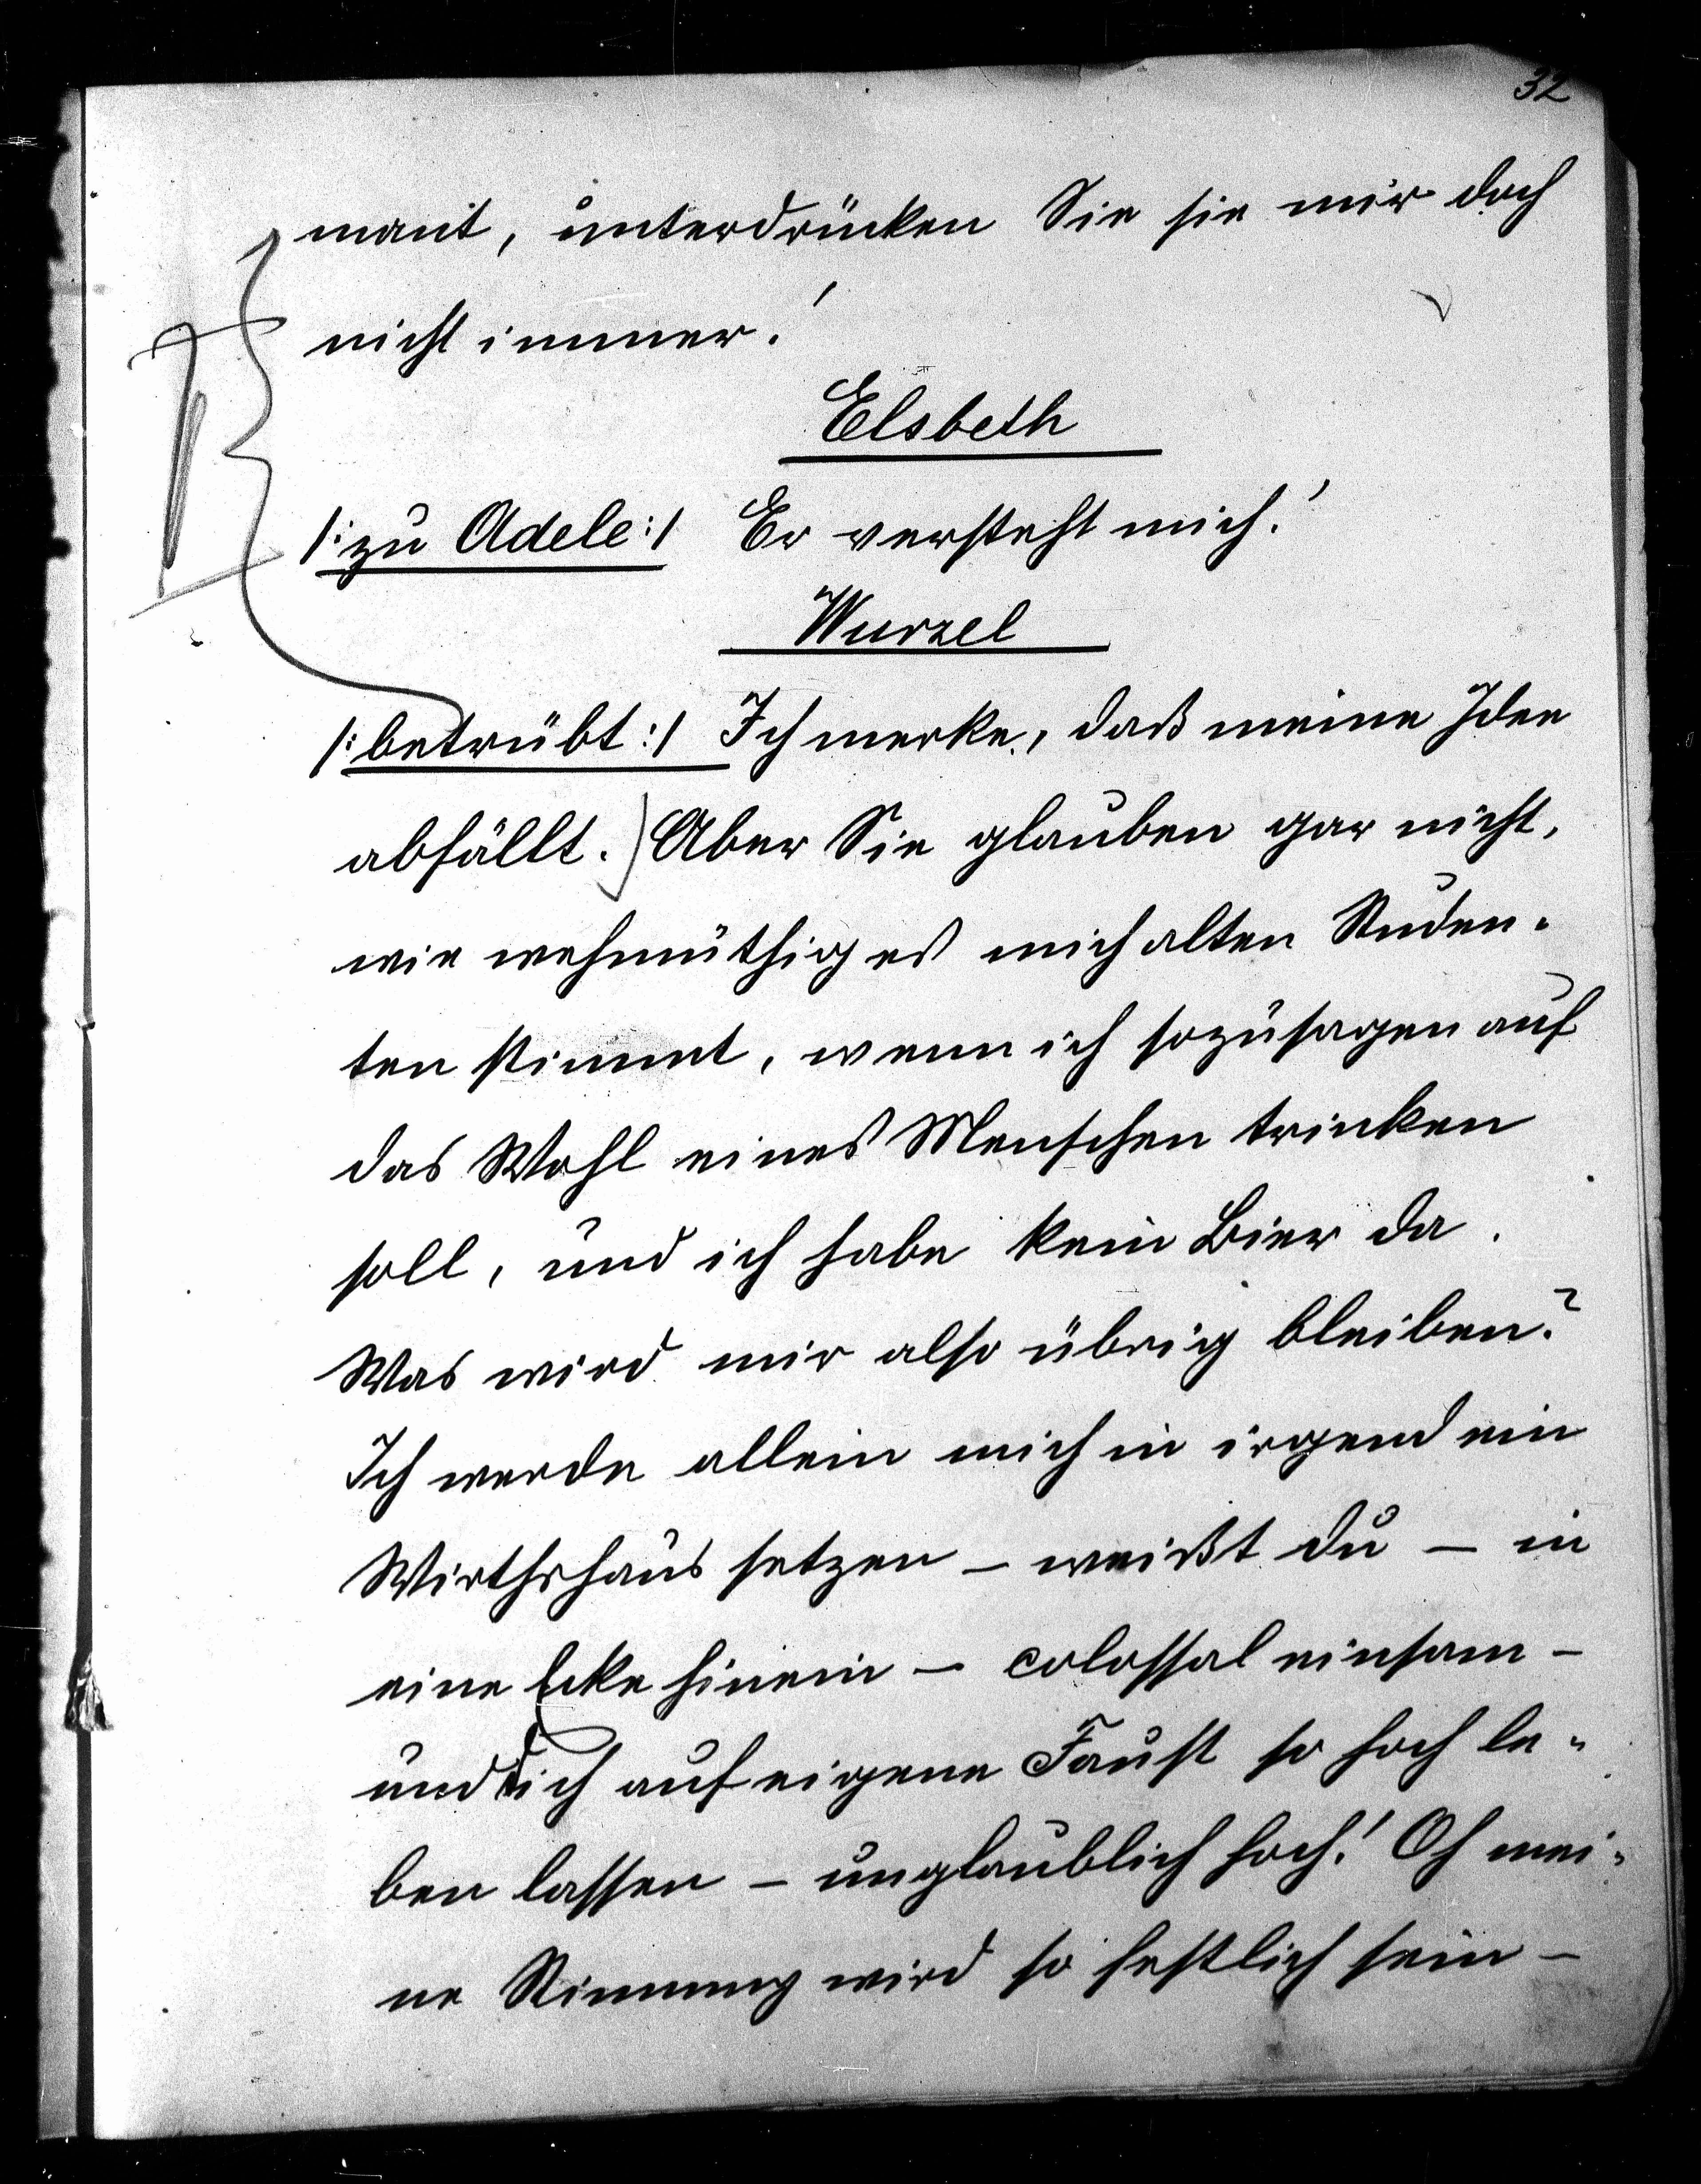 32
mant, unterdrücken Sie sie mir doch
nicht immer!
Elsbeth
/:zu Adele:/ Er versteht mich!
Wurzel
/:betrübt:/ Ich merke, daß meine Idee
abfällt. Aber Sie glauben gar nicht,
wie wehmüthig es mich alten Studen-
ten stimmt, wenn ich sozusagen auf
das Wohl eines Menschen trinken
soll, und ich habe kein Bier da.
Was wird mir also übrig bleiben?
Ich werde allein mich in irgend ein
Wirthshaus setzen – weißt du – in
eine Ecke hinein – colossal einsam –
und dich auf eigene Faust so hoch le-
ben lassen – unglaublich hoch! Oh mei-
ne Stimmung wird so festlich sein –